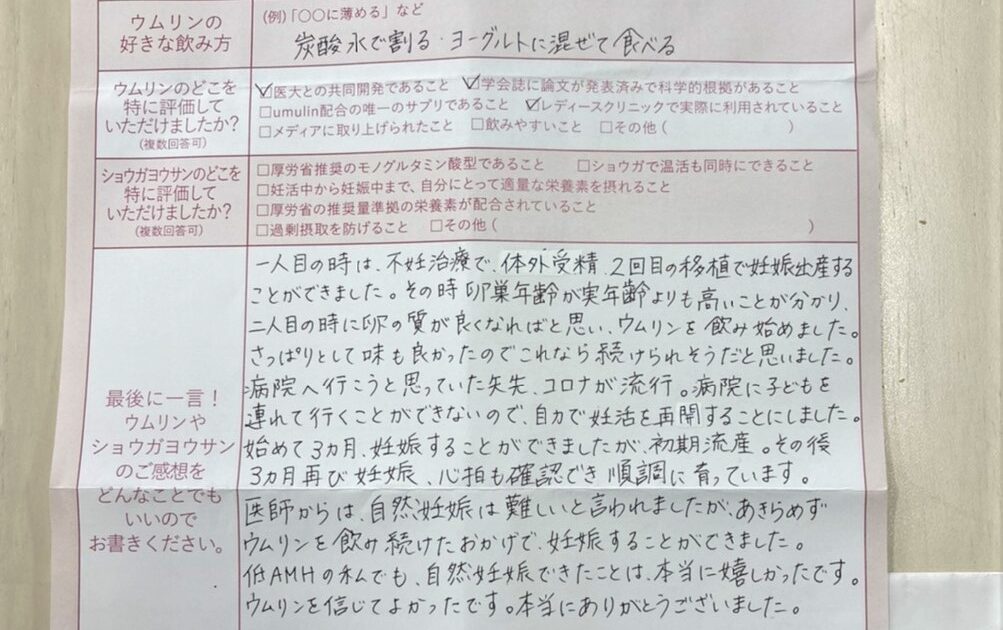 ウムリンの
好きな飲み方
(例)「〇〇に薄める」など
炭酸水で割る・ヨーグルトに混ぜて食べる
ウムリンのどこを
特に評価して
いただけましたか?
(複数回答可)
☑医大との共同開発であること ☑学会誌に論文が発表済みで科学的根拠があること
□umulin配合の唯一のサプリであること ☑レディースクリニックで実際に利用されていること
□メディアに取り上げられたこと □飲みやすいこと □その他( )
ショウガヨウサンのどこを
特に評価して
いただけましたか?
(複数回答可)
□厚労省推奨のモノグルタミン酸型であること □ショウガで温活も同時にできること
□妊活中から妊娠中まで、自分にとって適量な栄養素を摂れること
□厚労省の推奨量準拠の栄養素が配合されていること
□過剰摂取を防げること □その他( )
最後に一言!
ウムリンや
ショウガヨウサン
のご感想を
どんなことでも
いいので
お書きください。
一人目の時は、不妊治療で、体外受精、2回目の移植で妊娠出産する
ことができました。その時卵巣年齢が実年齢よりも高いことが分かり、
二人目の時に卵の質が良くなればと思い、ウムリンを飲み始めました。
さっぱりとして味も良かったのでこれなら続けられそうだと思いました。
病院へ行こうと思っていた矢先、コロナが流行。病院に子どもを
連れて行くことができないので、自力で妊活を再開することにしました。
始めて3カ月、妊娠することができましたが、初期流産。その後
3カ月再び妊娠、心拍も確認でき順調に育っています。
医師からは、自然妊娠は難しいと言われましたが、あきらめず
ウムリンを飲み続けたおかげで、妊娠することができました。
低AMHの私でも、自然妊娠できたことは、本当に嬉しかったです。
ウムリンを信じてよかったです。本当にありがとうございました。